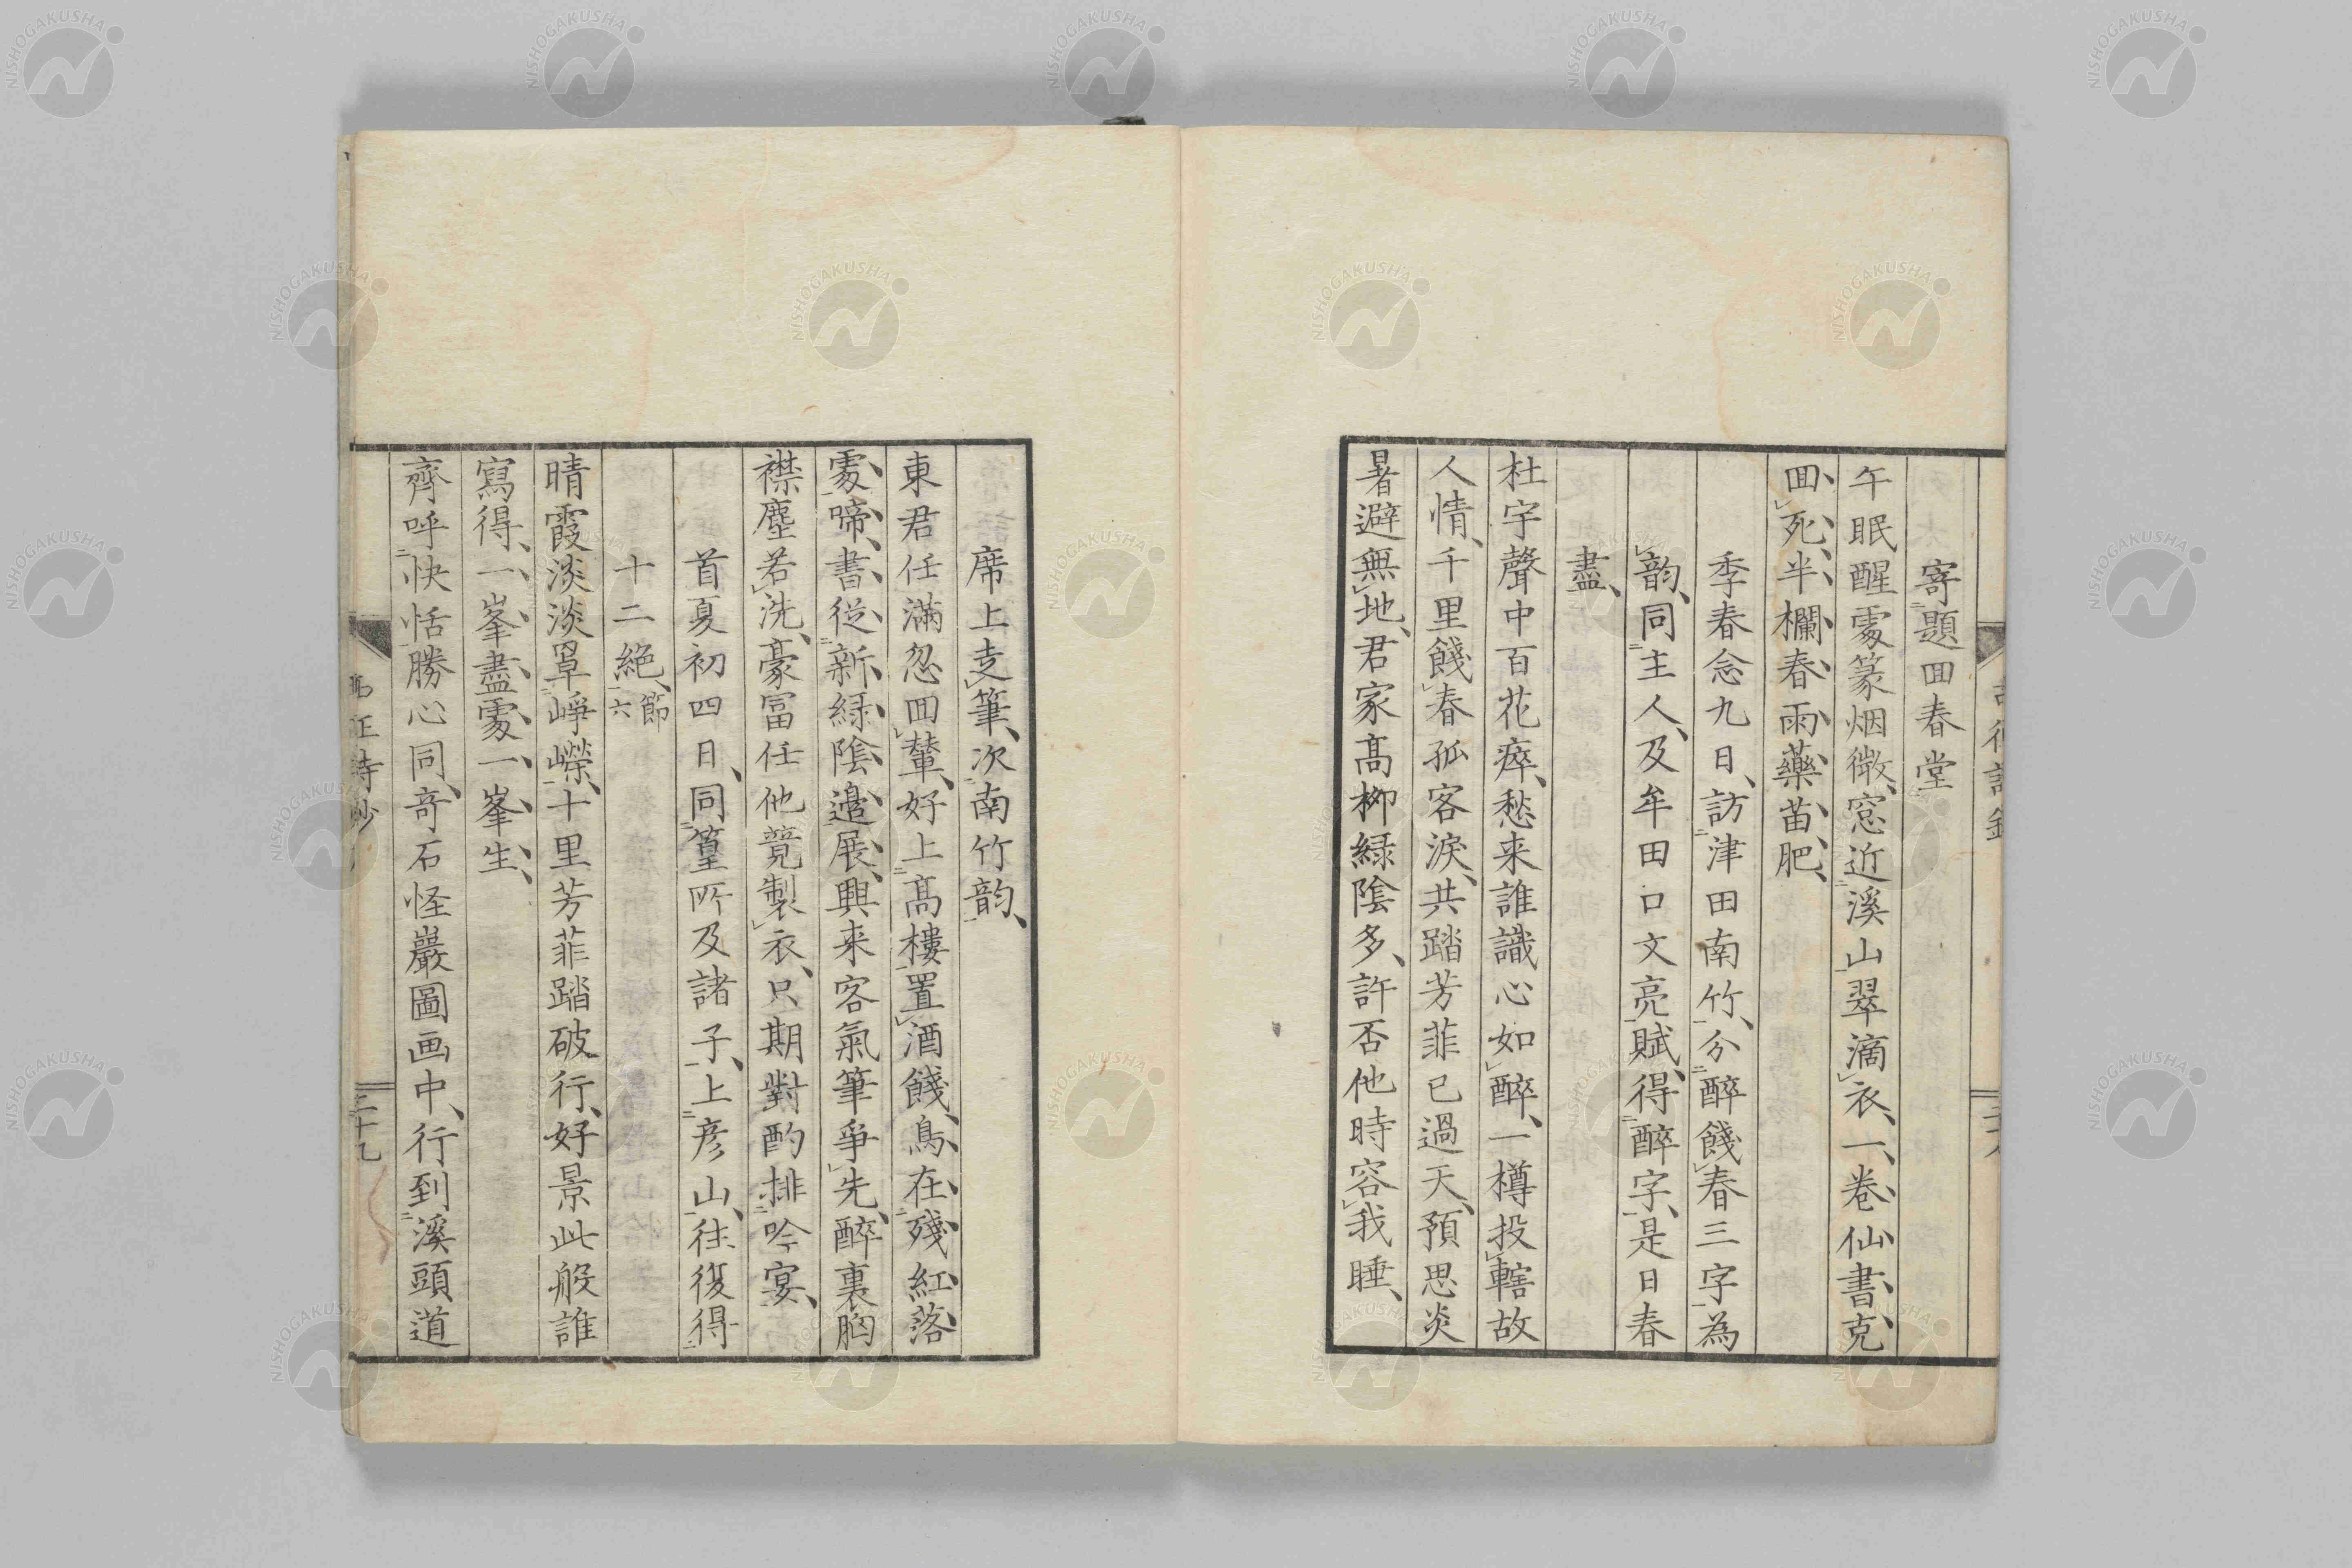 寄題回春堂
午眠醒處篆烟微、窓近溪山翠滴衣、一卷仙書克
回死、半欄春雨藥苗肥、
季春念九日、訪津田南竹、分醉餞春三字為
韵、同主人及牟田口文亮賦、得醉字、是日春
盡、
杜宇聲中百花瘁、愁来誰識心如醉、一樽投轄故
人情、千里餞春孤客淚、共踏芳菲已過天、預思炎
暑避無地、君家髙柳緑陰多、許否他時容我睡、
席上走筆、次南竹韵、
東君任滿忽回輦、好上髙樓置酒餞、鳥在殘紅落
處啼、書從新緑陰邉展、興来客氣筆爭先、醉裏胸
襟塵若洗、豪冨任他蕘製衣、只期對酌排吟宴、
首夏初四日、同篁所及諸子、上彦山、往復得
十二絶、節六
晴霞淡淡罩崢嶸、十里芳菲踏破行、好景此般誰
寫得、一峯盡處一峯生、
齊呼快恬勝心同、竒石怪巖圖画中、行到溪頭道
三十九
NISHOGAKUSHA